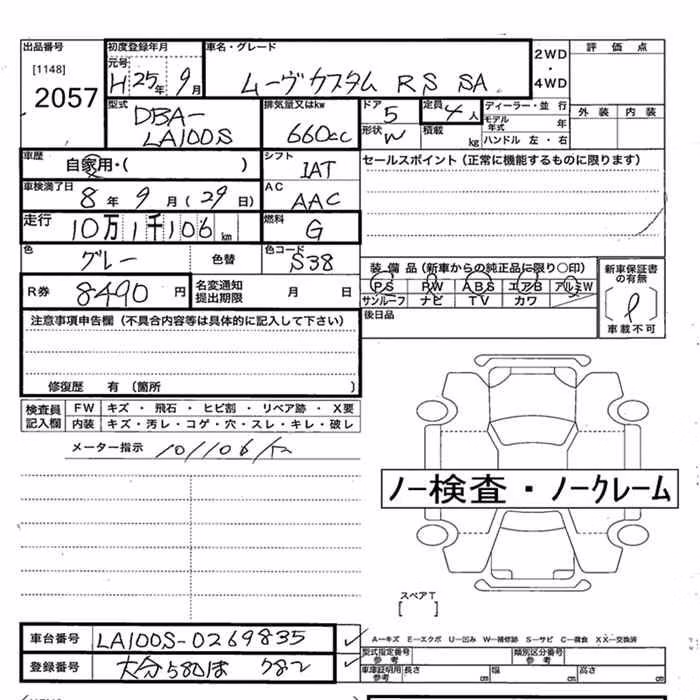 出品番号 初度登録年月 車名・グレード 2WD・4WD 評価点
[1148] 元号
2057 H 25年 9月 ムーヴカスタム RS SA
型式 排気量又はkw ドア 定員 ディーラー・並行 外装 内装
DBA-LA100S 660cc 5 4人 モデル年式 年
形状 W 積載 kg ハンドル 左・右
車歴 シフト セールスポイント (正常に機能するものに限ります)
自家用・( ) IAT
車検満了日 AC
8年 9月 (29日) AAC
走行 燃料
10万1千106km G
色 色替 色コード 装備品 (新車からの純正品に限り○印) 新車保証書の有無
グレー S38
PS PW ABS エアB アルミW
サンルーフ ナビ TV カワ
R券 8490円 名変通知提出期限 月 日 車載不可
注意事項申告欄 (不具合内容等は具体的に記入して下さい) 後日品
修復歴 有 (箇所 )
検査員記入欄 FW キズ・飛石・ヒビ割・リペア跡・X要
内装 キズ・汚レ・コゲ・穴・スレ・キレ・破レ
メーター指示 101106km
ノー検査・ノークレーム
スペアT
[ ]
車台番号 LA100S-0269835
A―キズ E―エクボ U―凹み W―補修跡 S―サビ C―腐食 XX―交換済
登録番号 大分580ほ 782
型式指定番号 参考 類別区分番号 参考
車庫証明用 参考 長さ cm 幅 cm 高さ cm